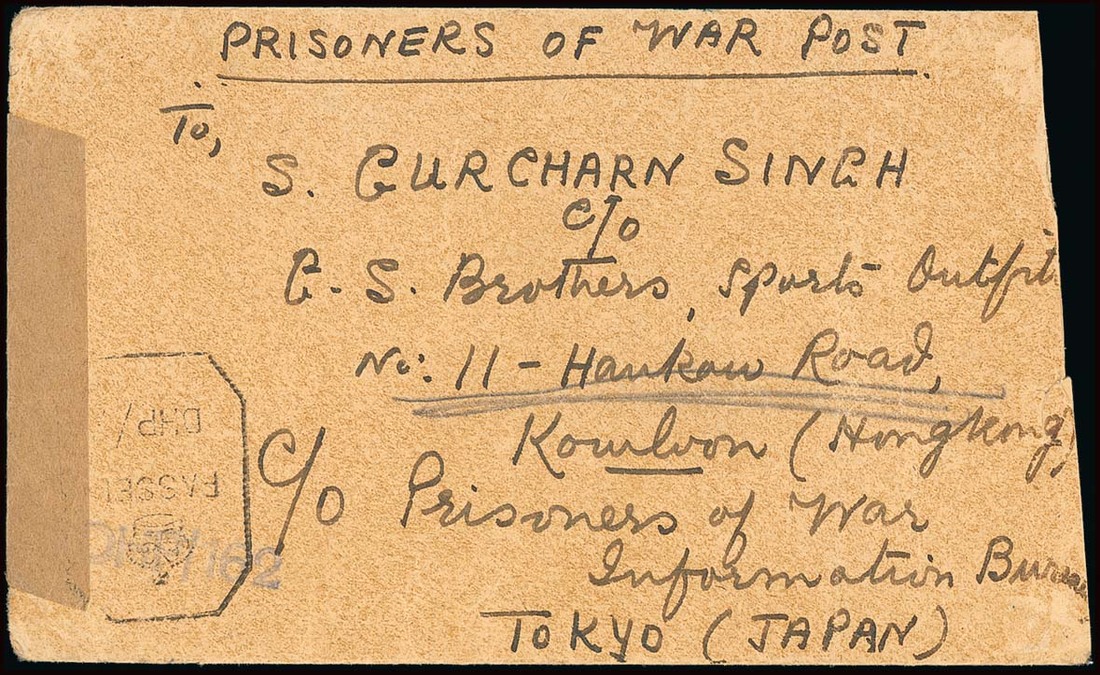 PRISONERS OF WAR POST.
To,
S. GURCHARN SINGH
c/o
G. S. Brothers, Sports Outfit
No: 11 - Hankow Road,
Kowloon (Hongkong)
c/o Prisoners of War
Information Burea
TOKYO (JAPAN)
PASSE
DHP/
DHP/162